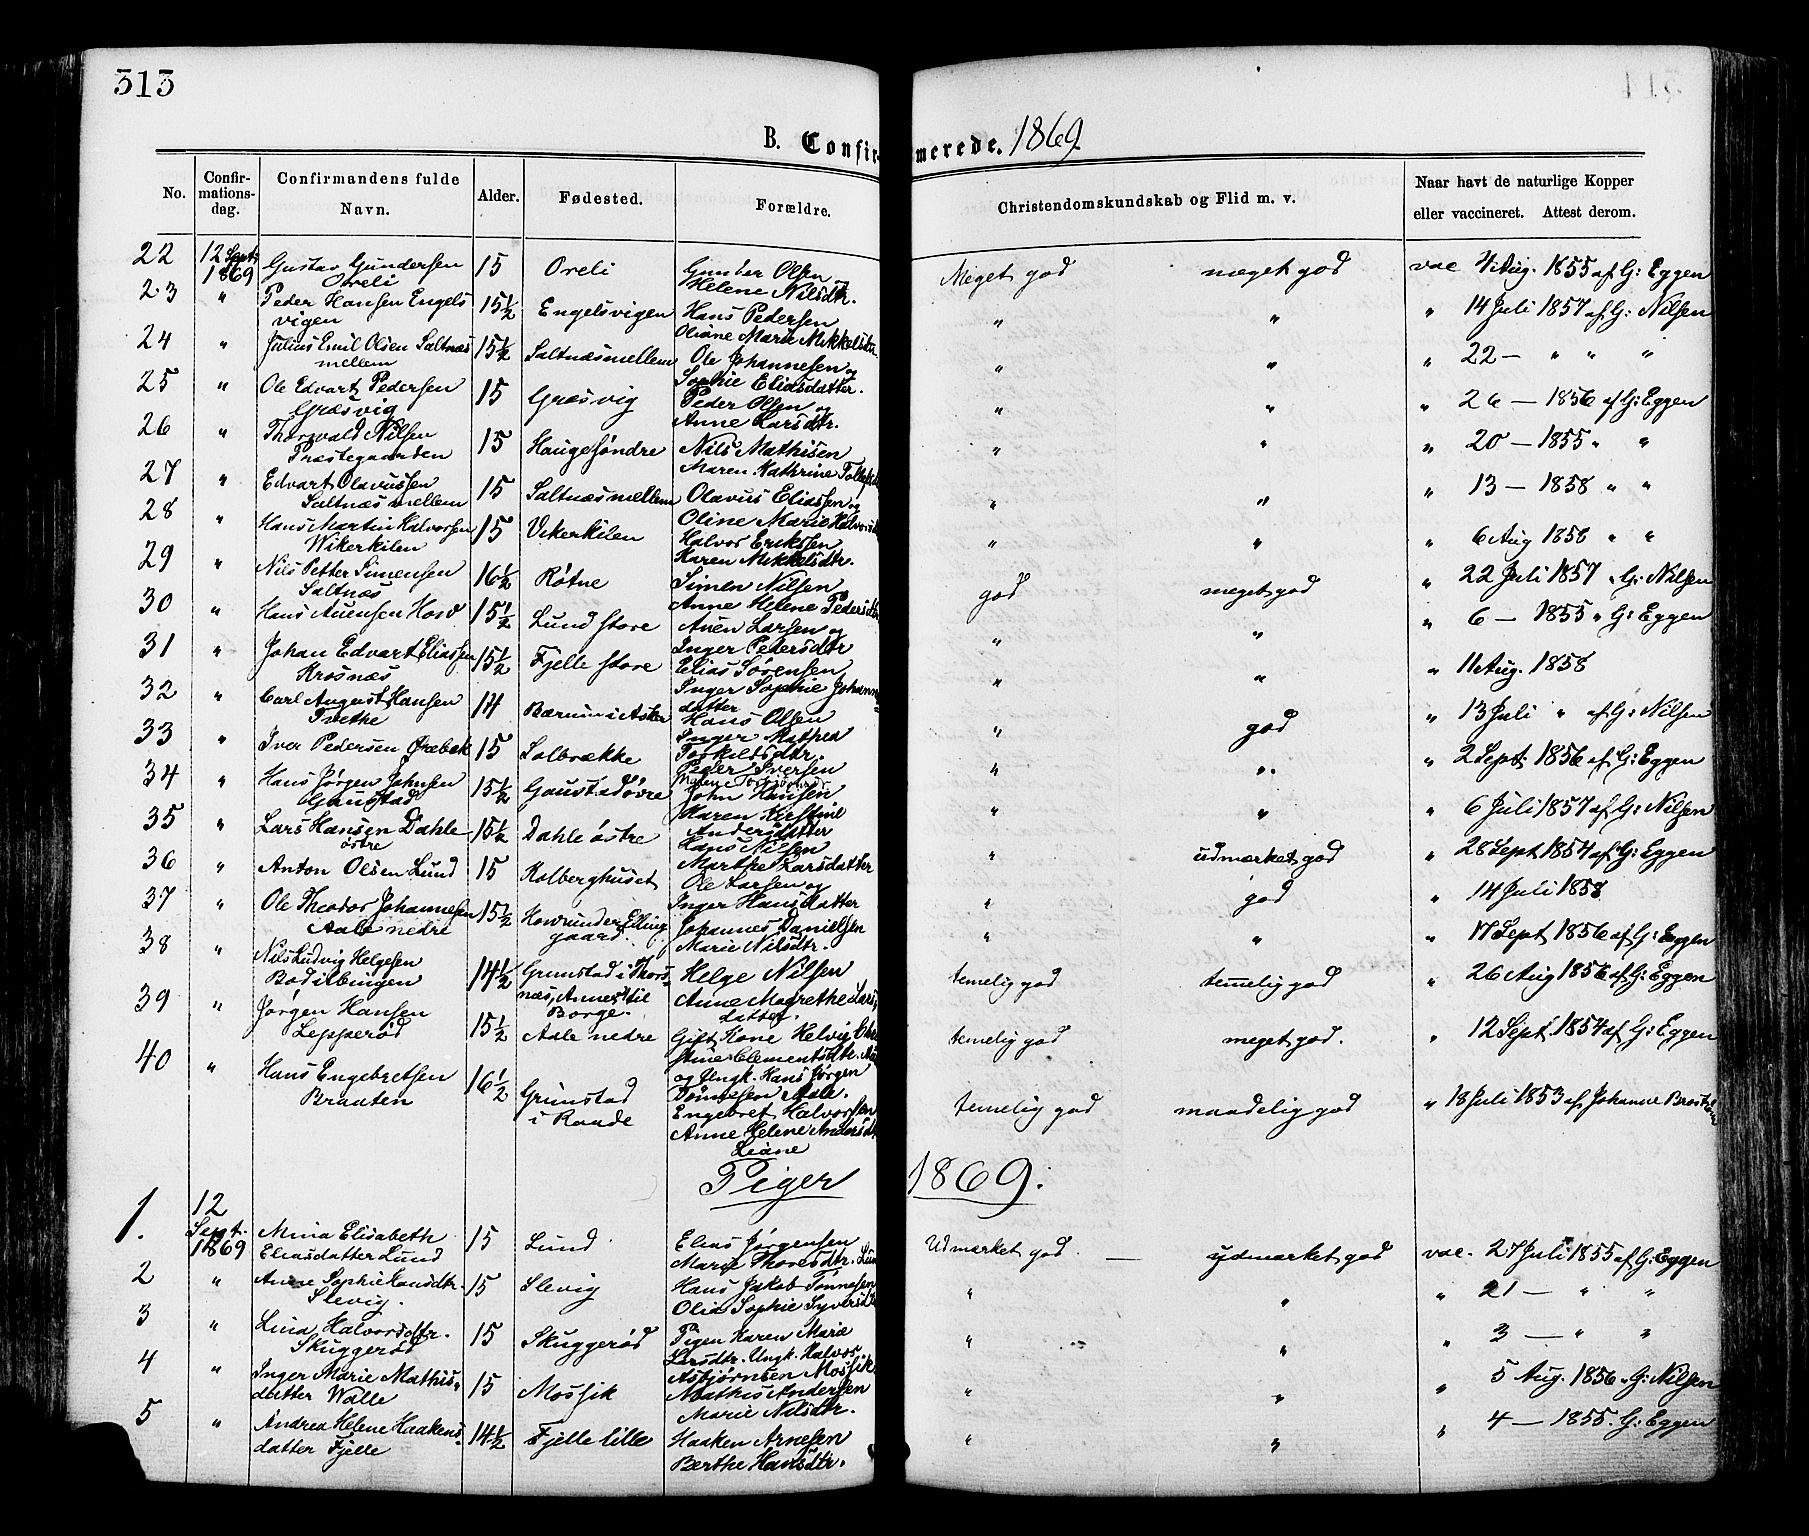 313
B. Confirmerede. 1869.
No. Confirmationsdag. Confirmandens fulde Navn. Alder. Fødested. Forældre. Christendomskundskab og Flid m. v. Naar havt de naturlige Kopper eller vaccineret. Attest derom.
22 12 Sept. 1869 Gustav Gundersen Oreli 15 Oreli Gunder Olsen Helene Nilsdtr. Meget god meget god vac Aug. 1855 af G: Eggen
23 " Peder Hansen Engelsvigen 15½ Engelsvigen Hans Pedersen Oliane Marie Mikkelsdtr " " " 14 Juli 1857 af G: Nilsen
24 " Julius Emil Olsen Saltnæs mellem 15½ Saltnæsmellem Ole Johannesen og Sophie Eliasdatter. " " " 22 — " " "
25 " Ole Edvart Pedersen Græsvig 15 Græsvig Peder Olsen og Anne Larsdtr. " " " 26 — 1856 af G: Eggen
26 " Thorvald Nilsen Præstegaarden 15 Haugesøndre Nils Mathisen Maren Kathrine " " " 20 — 1855 " "
27 " Edvart Olavussen Saltnæs mellem 15 Saltnæsmellem Olavus Eliassen og Oline Marie Halvorsd " " " 13 — 1858 " "
28 " Hans Martin Halvorsen Wikerkilen 15 Vikerkilen Halvor Eriksen Karen Mikkelsdtr. " " " 6 Aug 1858 " "
29 " Nils Petter Simensen Saltnæs 16½ Røtne Simen Nilsen Anne Helene Pedersdtr god meget god " 22 Juli 1857 " G: Nilsen
30 " Hans Auensen Hovd 15½ Lund store Auen Larsen og Inger Pedersdtr " " " 6 — 1855 " G: Eggen
31 " Johan Edvart Eliassen Krosnæs 15½ Fjelle store Elias Sørensen Inger Sophie Johannedatter " " " 11 Aug. 1858
32 " Carl August Hansen Tvethe 14 Bærum i Asker Hans Olsen Inger Mathea Torkildsdtr " god " 13 Juli " af G: Nilsen
33 " Iver Pedersen Ørebæk 15 Solbrække Peder Iversen " " " 2 Sept: 1856 af G: Eggen
34 " Hans Jørgen Johnsen Gaustad 15½ Gaustad øvre John Hansen Karen Kirstine Andersdatter " " " 6 Juli 1857 af G: Nilsen
35 " Lars Hansen Dahle østre 15½ Dahle østre Hans Nilsen Marthe Larsdatter " udmærket god " 28 Sept 1854 af G: Eggen
36 " Anton Olsen Lund 15 Kolberghuset Ole Larsen og Inger Hansdatter " god " 14 Juli 1858
37 " Ole Theodor Johannesen Aale nedre 15½ Hovrunder Ellingaard. Johannes Danielsen Marie Nilsdtr. " " " 17 Sept 1856 af G: Eggen
38 " Nils Ludvig Helgesen Bodilbingen 14½ Grimstad i Thorsnæs, Annex til Borge. Helge Nilsen Anne Magrethe Larsdatter temelig god temelig god " 26 Aug 1856 af G: Eggen
39 " Jørgen Hansen Lepperød 15½ Aale nedre Gift Kone Helvig Christine Clementsdtr. og Ungk. Hans Jørgen Tønnesen Aale. temelig god meget god. " 12 Sept 1854 af G: Eggen
40 " Hans Engebretsen Braaten 16½ Grimstad i Raade Engebret Halvorsen Anne Helene Andersdtr Liane temelig god maadelig god " 18 Juli 1853 af Johanne
Piger 1869:
1. 12 Sept. 1869 Mina Elisabeth Eliasdatter Lund 15 Lund Elias Jørgensen Marie Thoresdtr. Lund Udmærket god — udmærket god vac. 27 Juli 1855 af G: Eggen
2 " Anne Sophie Hansdtr. Slevig. 15 Slevig Hans Jakob Tønnesen Olia Sophie Syversd " " " 21 — " "
3 " Lina Halvorsdtr. Skuggerød 15 Skuggerød Pigen Karen Marie Larsdtr. Ungk. Halvor Asbjørnsen Mossik " " " 3 — " "
4 " Inger Marie Mathisdatter Walle 15 Mossik Mathis Andersen Marie Nilsdtr. " " " 5 Aug. 1856 " G: Nilsen
5 " Andrea Helene Haakensdatter Fjelle 14½ Fjelle lille Haaken Arnesen Berthe Hansdtr. " " " 4 — 1855. G: Eggen